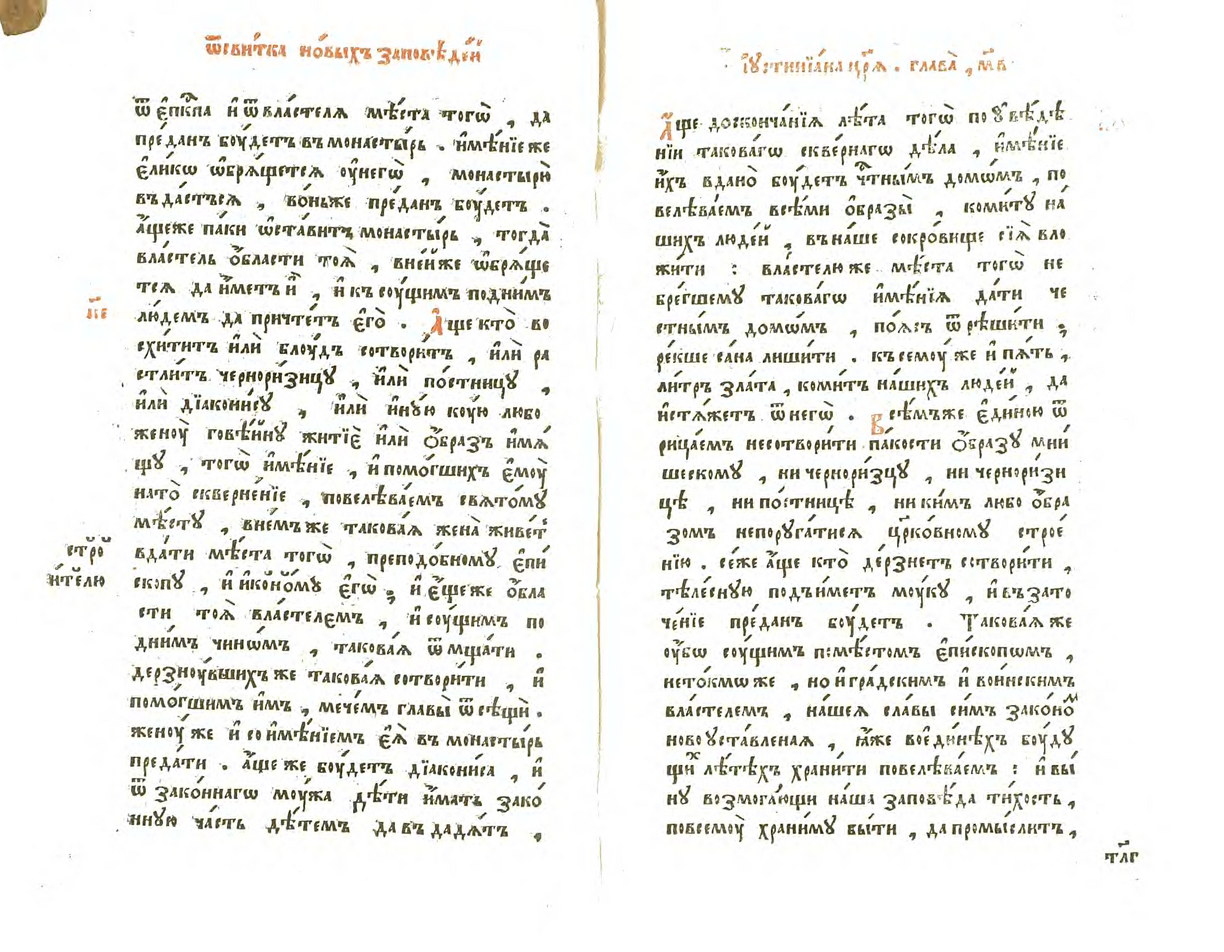 ѿ свитка новыхъ заповѣдей
ѿ є҆пкⷭ҇па и҆ ѿ вла́стелѧ мѣ́ста тогѡ̀ , да
пре́данъ бꙋ́детъ въ монасты́рь . и҆мѣ́нїе же
є҆ли́кѡ ѡ҆брѧ́щетсѧ ᲂу҆ негѡ̀ , монастырю̀
въда́стъсѧ , во́ньже пре́данъ бꙋ́детъ .
а҆́щеже па́ки ѡ҆ста́витъ монасты́рь , тогда̀
вла́стель ѻ҆́бласти тоѧ̀ , в не́йже ѡ҆брѧ́ще
тсѧ да и҆́метъ и҆̀ , и҆ къ сꙋ́щимъ под ни́мъ
лю́демъ да причте́тъ є҆го̀ . А҆́ще кто̀ во
схи́титъ и҆лѝ блꙋ́дъ сотвори́тъ , и҆лѝ ра
стли́тъ черноризицꙋ , и҆лѝ по́стницꙋ ,
и҆лѝ дїакони́сꙋ , и҆лѝ и҆нꙋ́ю кꙋ́ю любо
женꙋ̀ говѣ́йнꙋ житїѐ и҆лѝ ѻ҆́бразъ и҆мѧ́
щꙋ , тогѡ̀ и҆мѣ́нїе , и҆ помо́гшихъ є҆мꙋ̀
на то̀ скверне́нїе , повелѣва́емъ свято́мꙋ
мѣ́стꙋ , в не́мъ же такова́ѧ жена̀ живе́тъ
вда́ти мѣ́ста тогѡ̀ , преподо́бномꙋ є҆пи́
скопꙋ , и҆ и҆коно́мꙋ є҆гѡ̀ , и҆ є҆ще́же ѻ҆бла
сти тоѧ̀ вла́стелємъ , и҆ сꙋ́щимъ по
дни́мъ чинѡ́мъ , такова́ѧ ѿмща́ти .
дерзнꙋ́вшихъ же такова́ѧ сотвори́ти , и҆
помо́гшимъ и҆̀мъ , мече́мъ главы̀ ѿсѣщѝ .
женꙋ́ же и҆ со и҆мѣ́нїемъ є҆ѧ̀ въ монасты́рь
преда́ти . а҆́ще же бꙋ́детъ дїакони́са , и҆
ѿ зако́ннагѡ мꙋ́жа дѣ́ти и҆́мать зако́
ннꙋю ча́сть дѣ́темъ да въдадѧ́тъ ,
м҃е
стро
и́телю
і҆ꙋстинїа́на цр҃ѧ̀ . глава̀ , м҃в
А҆́ще до сконча́нїѧ лѣ́та тогѡ̀ по ᲂу҆вѣ́дѣ
нїи такова́гѡ скве́рнагѡ дѣ́ла , и҆мѣ́нїе
и҆́хъ вдано̀ бꙋ́детъ чⷭ҇тны́мъ домѡ́мъ , по
велѣва́емъ всѣ́ми ѻ҆́бразы̀ , коми́тꙋ на́
шихъ люде́й , въ на́ше сокро́вище сїѧ̀ вло
жи́ти : вла́стелю же мѣ́ста тогѡ̀ не
бре́гшемꙋ такова́гѡ и҆мѣ́нїѧ да́ти че
стны́мъ домѡ́мъ , по́ѧсъ ѿрѣши́ти ,
ре́кше са́на лиши́ти . къ семꙋ́ же и҆ пѧ́ть ,
ли́тръ зла́та , коми́тъ на́шихъ люде́й , да
и҆стѧ́жетъ ѿ негѡ̀ . Всѣ́мъже є҆ди́ною ѿ
рица́емъ несотвори́ти па́кости ѻ҆́бразꙋ мни́
шескомꙋ , ни черноризцꙋ , ни чернори́зи
цѣ , ни по́стницѣ , ни ки́мъ любо ѻ҆́бра
зомъ непорꙋга́тисѧ црⷪ҇ко́вномꙋ строе́
нїю . се́же а҆́ще кто̀ де́рзнетъ сотвори́ти ,
тѣле́снꙋю подъи́метъ мꙋ́кꙋ , и҆ въ зато
че́нїе пре́данъ бꙋ́детъ . Такова́ѧ же
ᲂу҆́бѡ сꙋ́щимъ по мѣ́стом є҆пи́скопѡмъ ,
нето́кмѡ же , но и҆ гра́дскимъ и҆ во́инскимъ
вла́стелемъ , на́шеѧ сла́вы си́мъ зако́нѡⷨ
новоᲂуста́вленаѧ , ꙗ҆̀же воеди́нѣхъ бꙋ́дꙋ
щиⷯ лѣ́тѣхъ храни́ти повелѣва́емъ : и҆ вы́
нꙋ возмога́ющи на́ша за́повѣда ти́хость ,
по всемꙋ̀ храни́мꙋ бы́ти , да промы́слитъ ,
тл҃г